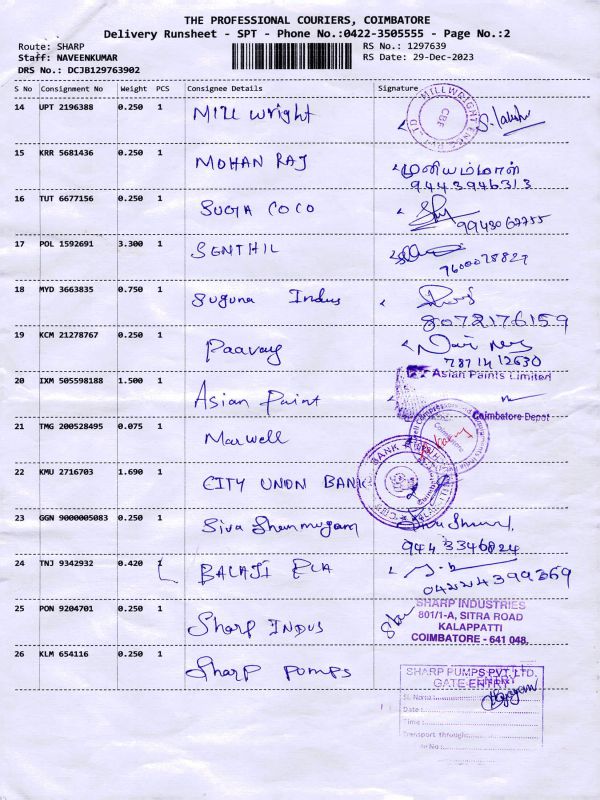 THE PROFESSIONAL COURIERS, COIMBATORE
Delivery Runsheet - SPT - Phone No.:0422-3505555 - Page No.:2
Route: SHARP
RS No.: 1297639
Staff: NAVEENKUMAR
RS Date: 29-Dec-2023
DRS No.: DCJB129763902
S No Consignment No Weight PCS Consignee Details Signature
14 UPT 2196388 0.250 1 Mill Wright
MILLWRIGHT
CBE
S. Lakshmi
15 KRR 5681436 0.250 1 MOHAN RAJ முனியம்மாள்
9443946313
16 TUT 6677156 0.250 1 SUGTA COCO
17 POL 1592691 3.300 1 SENTHIL
7600078827
18 MYD 3663835 0.750 1 Suguna Indus
8072176159
19 KCM 21278767 0.250 1 Paavay
7871412630
20 IXM 505598188 1.500 1 Asian Paint
Asian Paints Limited
Coimbatore Depot
21 TMG 200528495 0.075 1 Marwell
Coimbatore
22 KMU 2716703 1.690 1 CITY UNON BANK
BANK
23 GGN 9000005083 0.250 1 Siva Shanmugam
9443346824
24 TNJ 9342932 0.420 1 BALAJI PLA
04224399369
25 PON 9204701 0.250 1 Sharp INDUS
SHARP INDUSTRIES
801/1-A, SITRA ROAD
KALAPPATTI
COIMBATORE - 641 048.
26 KLM 654116 0.250 1 Sharp PUMPS
SHARP PUMPS PVT. LTD.
GATE ENTRY
Sl. No
Date :
Time :
Transport through
No :